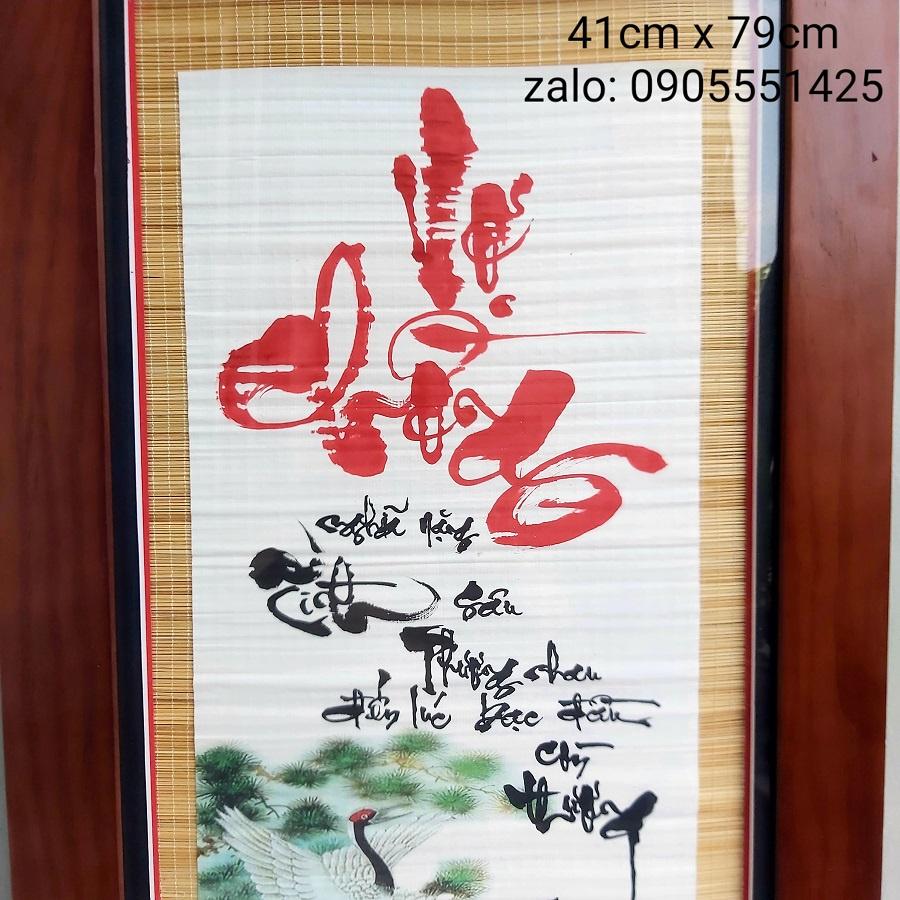 41cm x 79cm
zalo: 0905551425
Vợ
Chồng
nghĩa nặng
tình sâu
Thương nhau
đến lúc bạc đầu
còn thương